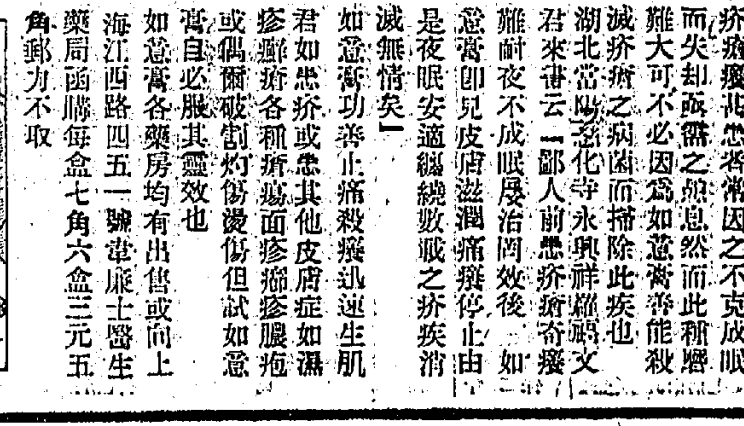 疥瘡癢甚患者常因之不克成眠
而失却亟需之休息然而此種磨
難大可不必因爲如意膏善能殺
滅疥瘡之病菌而掃除此疾也
湖北當陽慈化寺永興祥羅福文
君來書云「鄙人前患疥瘡奇癢
難耐夜不成眠屢治罔效後 如
意膏卽見皮膚滋潤痛癢停止由
是夜眠安適纏繞數載之疥疾消
滅無情矣」
如意膏功善止痛殺癢迅速生肌
君如患疥或患其他皮膚症如濕
疹癬瘡各種瘡瘍面疹癤疹膿疱
或偶爾破割灼傷燙傷但試如意
膏自必服其靈效也
如意膏各藥房均有出售或向上
海江西路四五一號韋廉士醫生
藥局函購每盒七角六盒三元五
角郵力不取